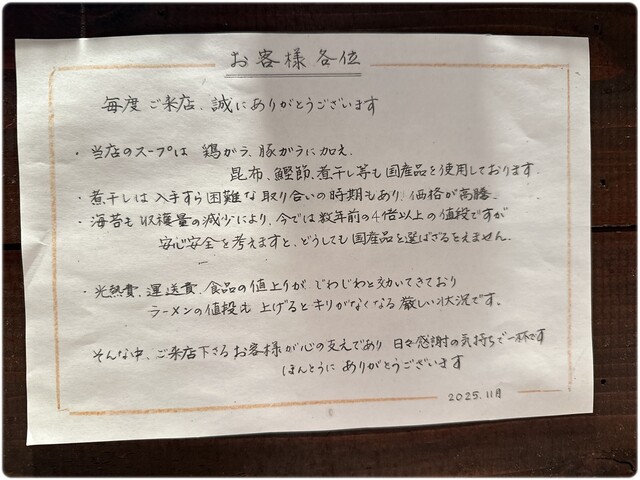 お客様各位
毎度ご来店、誠にありがとうございます
・当店のスープは 鶏がラ、豚がラに加え、
昆布、鰹節、煮干し等も国産品を使用しております.
・煮干しは入手すら困難な取り合いの時期もあり、価格が高騰。
・海苔も収穫量の減少により、今では数年前の4倍以上の値段ですが
安心安全を考えますと、どうしても国産品を選ばざるをえません.
・光熱費、運送費、食品の値上りが じわじわと効いてきており
ラーメンの値段も 上げるとキリがなくなる厳しい状況です。
そんな中、ご来店下さるお客様が心の支えであり 日々感謝の気持ちで一杯です
ほんとうに ありがとうございます
2025.11月